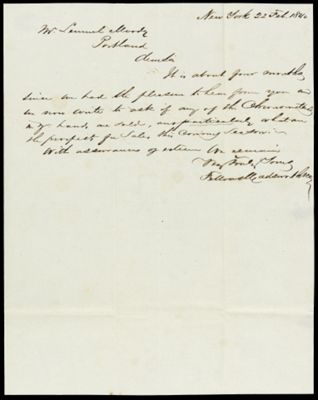 New York 22 Feb. 1840
Mr Lemuel Moody
Portland
It is about four months
since we had the pleasure to hear from you and
we now write to ask if any of the Chronometers
in yr hands are sold, and particularly what are
the prospects for Sales, this coming Season.
With assurances of esteem We remain
Very Truly Yours
Fellows